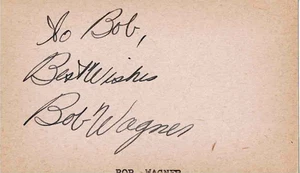 To Bob,
Best Wishes
Bob Wagner
BOB WAGNER